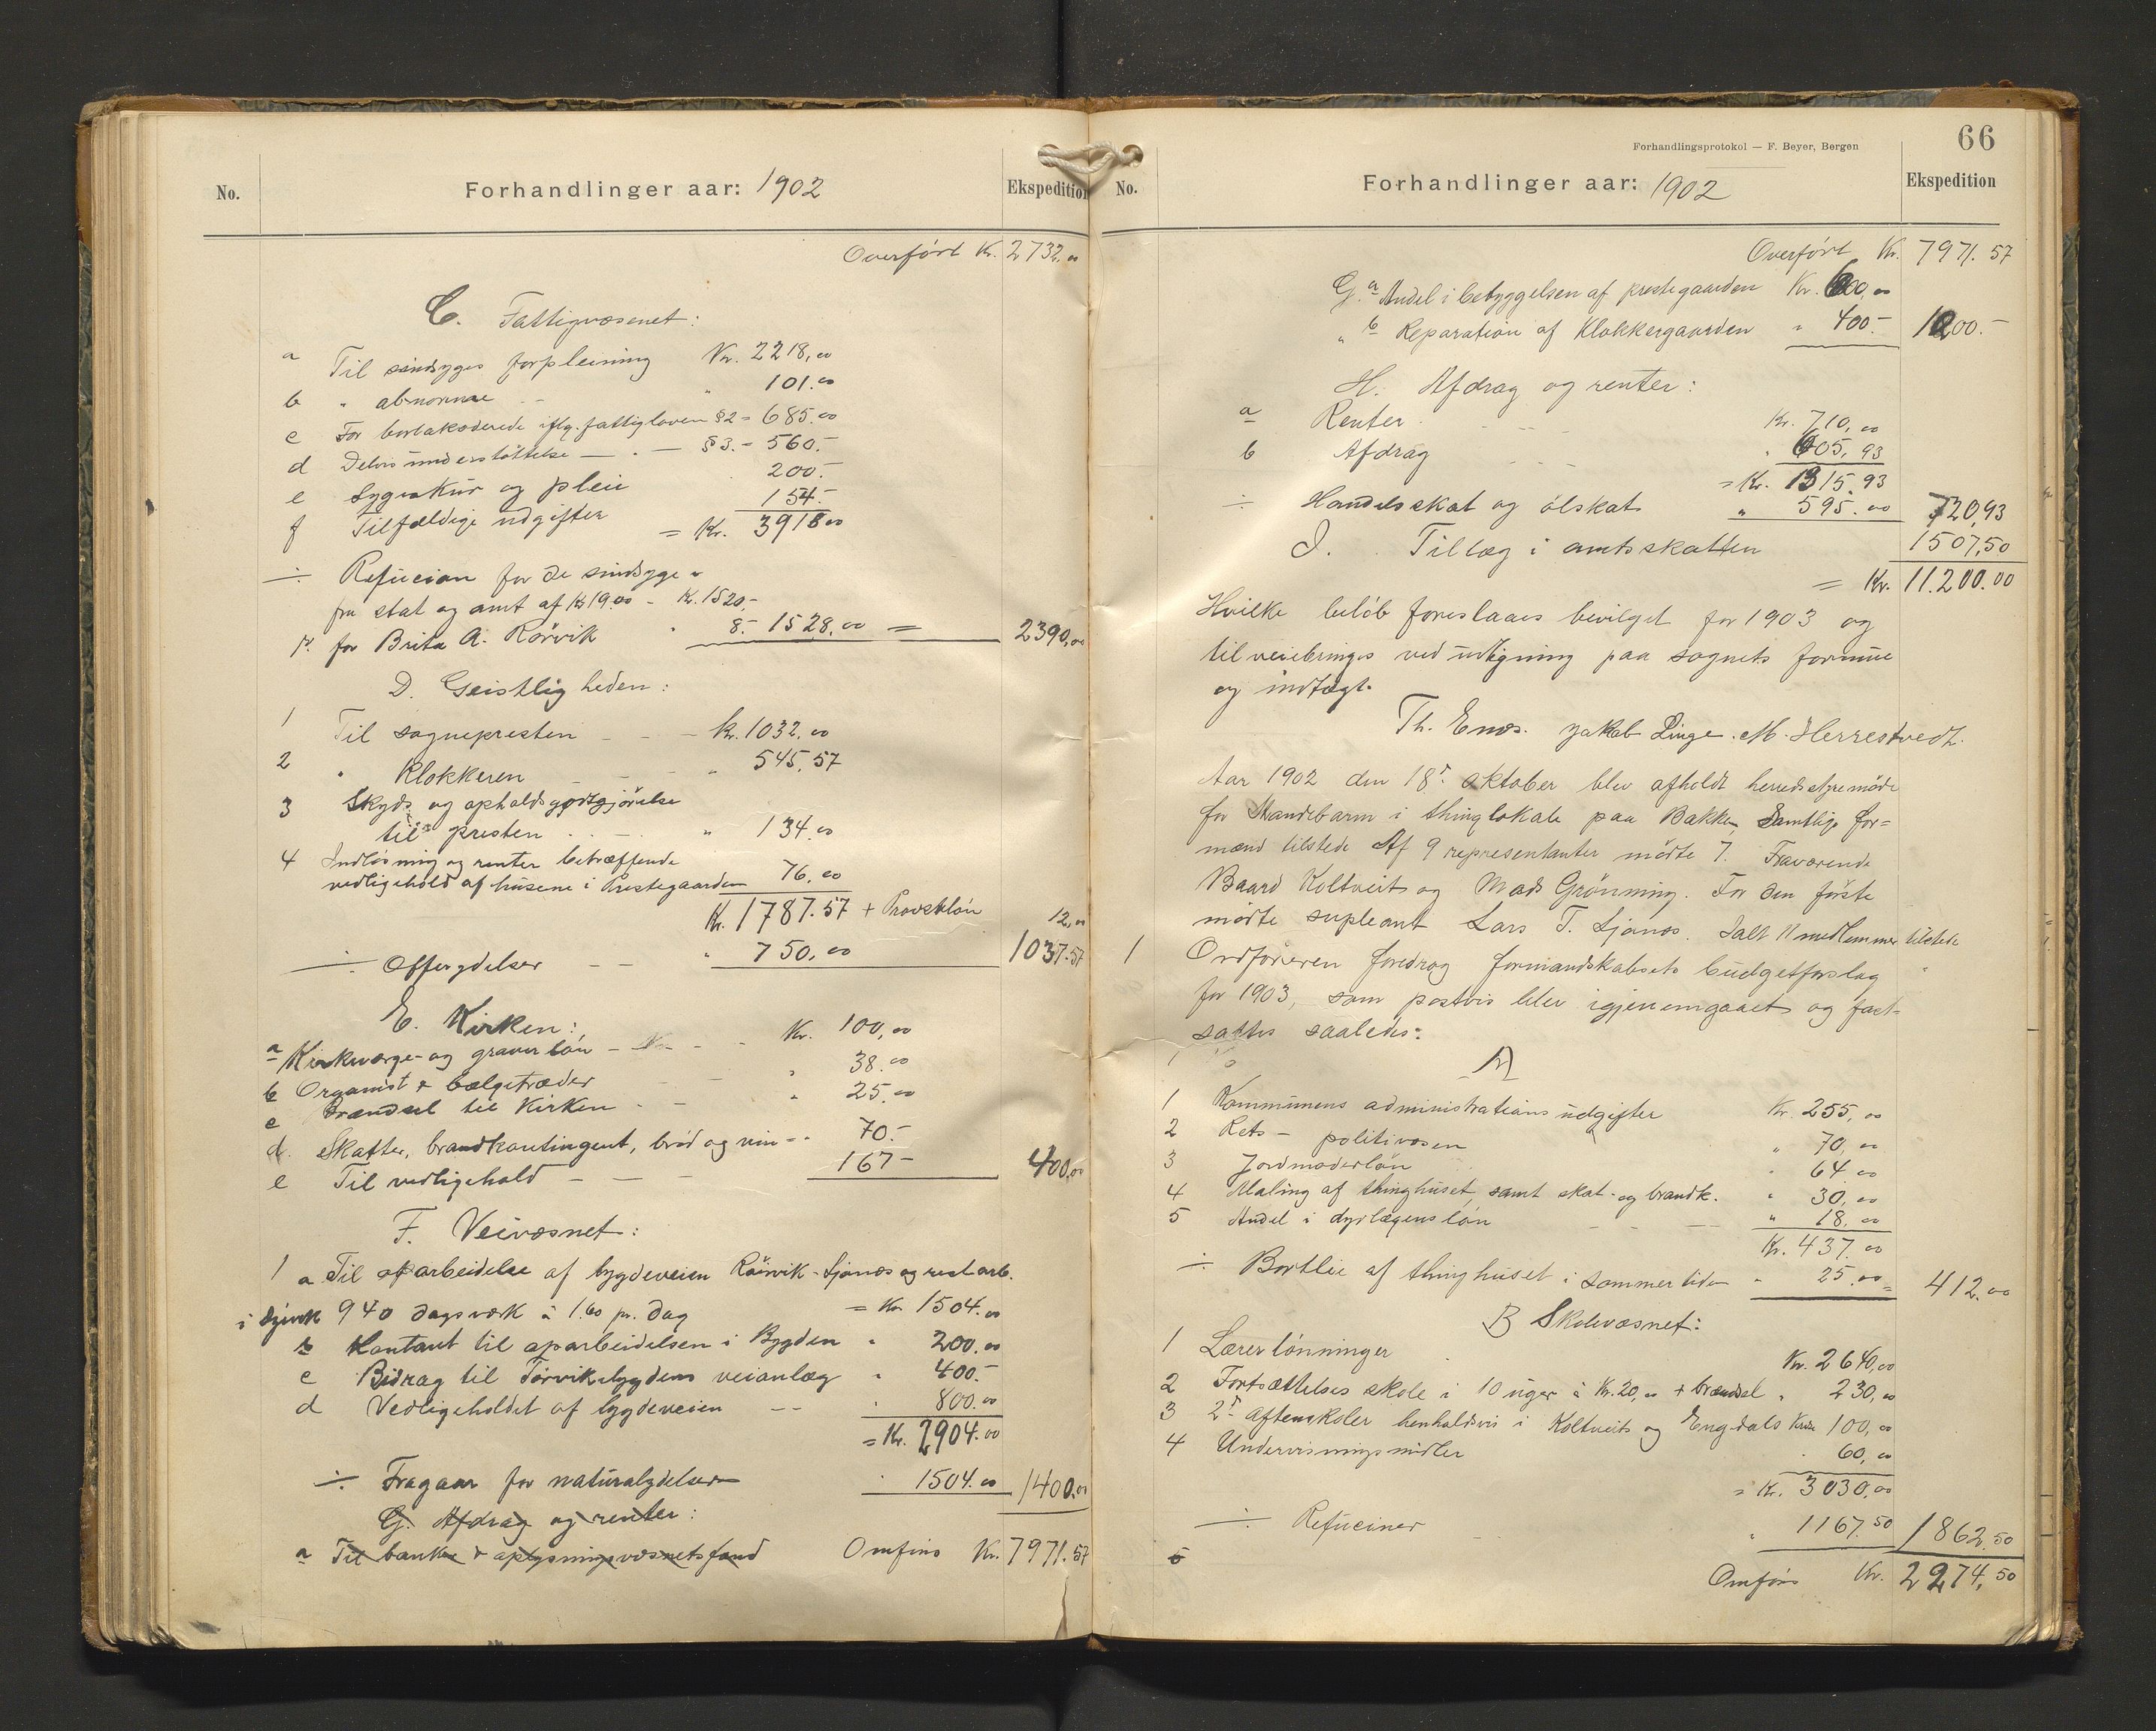 No.
Forhandlinger aar: 1902
Ekspedition
Overført Kr. 2732.00
C. Fattigvæsenet:
a Til sindsyges forpleining Kr. 2218,00
b " abnorme - - " 101.00
c For bortakorderede iflg. fattigloven §2 - 685.00
d Delvis understøttelse — " — §3. - 560.-
e Sygekur og pleie 200.-
f Tilfældige udgifter 154.-
= Kr. 3918.00
÷ Refucion for de sindsyge
fra stat og amt af Kr 19.00 - Kr. 1520,-
for Brita A. Rørvik " 8.- 1528,00 = 2390,00
D. Geistligheden:
1 Til sognepresten - - - kr. 1032.00
2 " Klokkeren - - - " 545,57
3 Skyds og opholdsgodtgjørelse
til presten - - - " 134.00
4 Indløsning og renter betræffende
vedligehold af husene i Prestegaarden 76,00
Kr. 1787.57 + Provstløn 12,00
÷ Offerydelser - - " 750,00 1037.57
E. Kirken:
a Kirkeværge- og graverløn - - - Kr. 100,00
b Organist & bælgetræder - - " 38.00
c Brændsel til Kirken - - " 25.00
d. Skatter, brandkontingent, brød og vin - - 70.-
e Til vedligehold - - - 167- 400,00
F. Veivæsnet:
1 a Til oparbeidelse af bygdeveien Rørvik - Ljonæs og rest arb.
i 940 dagsværk à 1.60 pr. dag = Kr 1504.00
b Kontant til oparbeidelsen i Bygden " 200.00
c Bidrag til Tørvikbygdens veianlæg " 400.-
d Vedligeholdet af bygdeveien - - " 800.00
= Kr. 2904.00
÷ Fragaar for naturalydelser " 1504.00 1400.00
G. Afdrag og renter:
a Til banke & oplysningsvæsnets fond Omføres Kr. 7971.57
66
Forhandlingsprotokol — F. Beyer, Bergen
No.
Forhandlinger aar: 1902
Ekspedition
Overført Kr. 7971.57
G. a Andel i bebyggelsen af prestegaarden Kr. 600,00
" b Reparation af Klokkergaarden " 400.- 1000.-
H. Afdrag og renter:
a Renter - - - Kr. 710,00
b Afdrag - - - " 605,93
= Kr. 1315.93
÷ Handelsskat og ølskat " 595.00 720,93
I. Tillæg i amtsskatten 1507,50
= Kr. 11.200.00
Hvilke beløb foreslaaes bevilget for 1903 og
tilveiebringes ved udligning paa sognets formue
og indtægt.
Th. Enæs. Jakob Linge. M. Herrestvedt.
Aar 1902 den 18de oktober blev afholdt herredsstyremøde
for Strandebarm i thinglokale paa Bakke, Samtlige for=
mænd tilstede Af 9 representanter mødte 7. Fraværende
Baard Koltveit og Mads Grønning. For den første
mødte supleant Lars T. Ljonæs. Ialt 11 medlemmer tilstede
1 Ordføreren foredrog formandskabets budgetforslag
for 1903, som postvis blev igjennemgaaet og fast-
sattes saaledes:
A
1 Kommunens administrationsudgifter Kr. 255,00
2 Rets- politivæsen " 70,00
3 Jordmoderløn " 64.00
4 Maling af thinghuset, samt skat- og brandk. " 30,00
5 Andel i dyrlægens løn - - - " 18.00
Kr. 437.00
÷ Bortleie af thinghuset i sommertiden " 25.00 = 412.00
B Skolevæsnet:
1 Lærerlønninger Kr. 2640,00
2 Fortsættelsesskole i 10 uger à Kr. 20,00 + brændsel " 230,00
3 2de aftenskoler henholdsvis i Koltveits og Engdals Kreds 100,00
4 Undervisningsmidler " 60,00
= Kr. 3030,00
÷ Refucioner - " 1167.50 1862,50
5
Omføres Kr. 2274,50